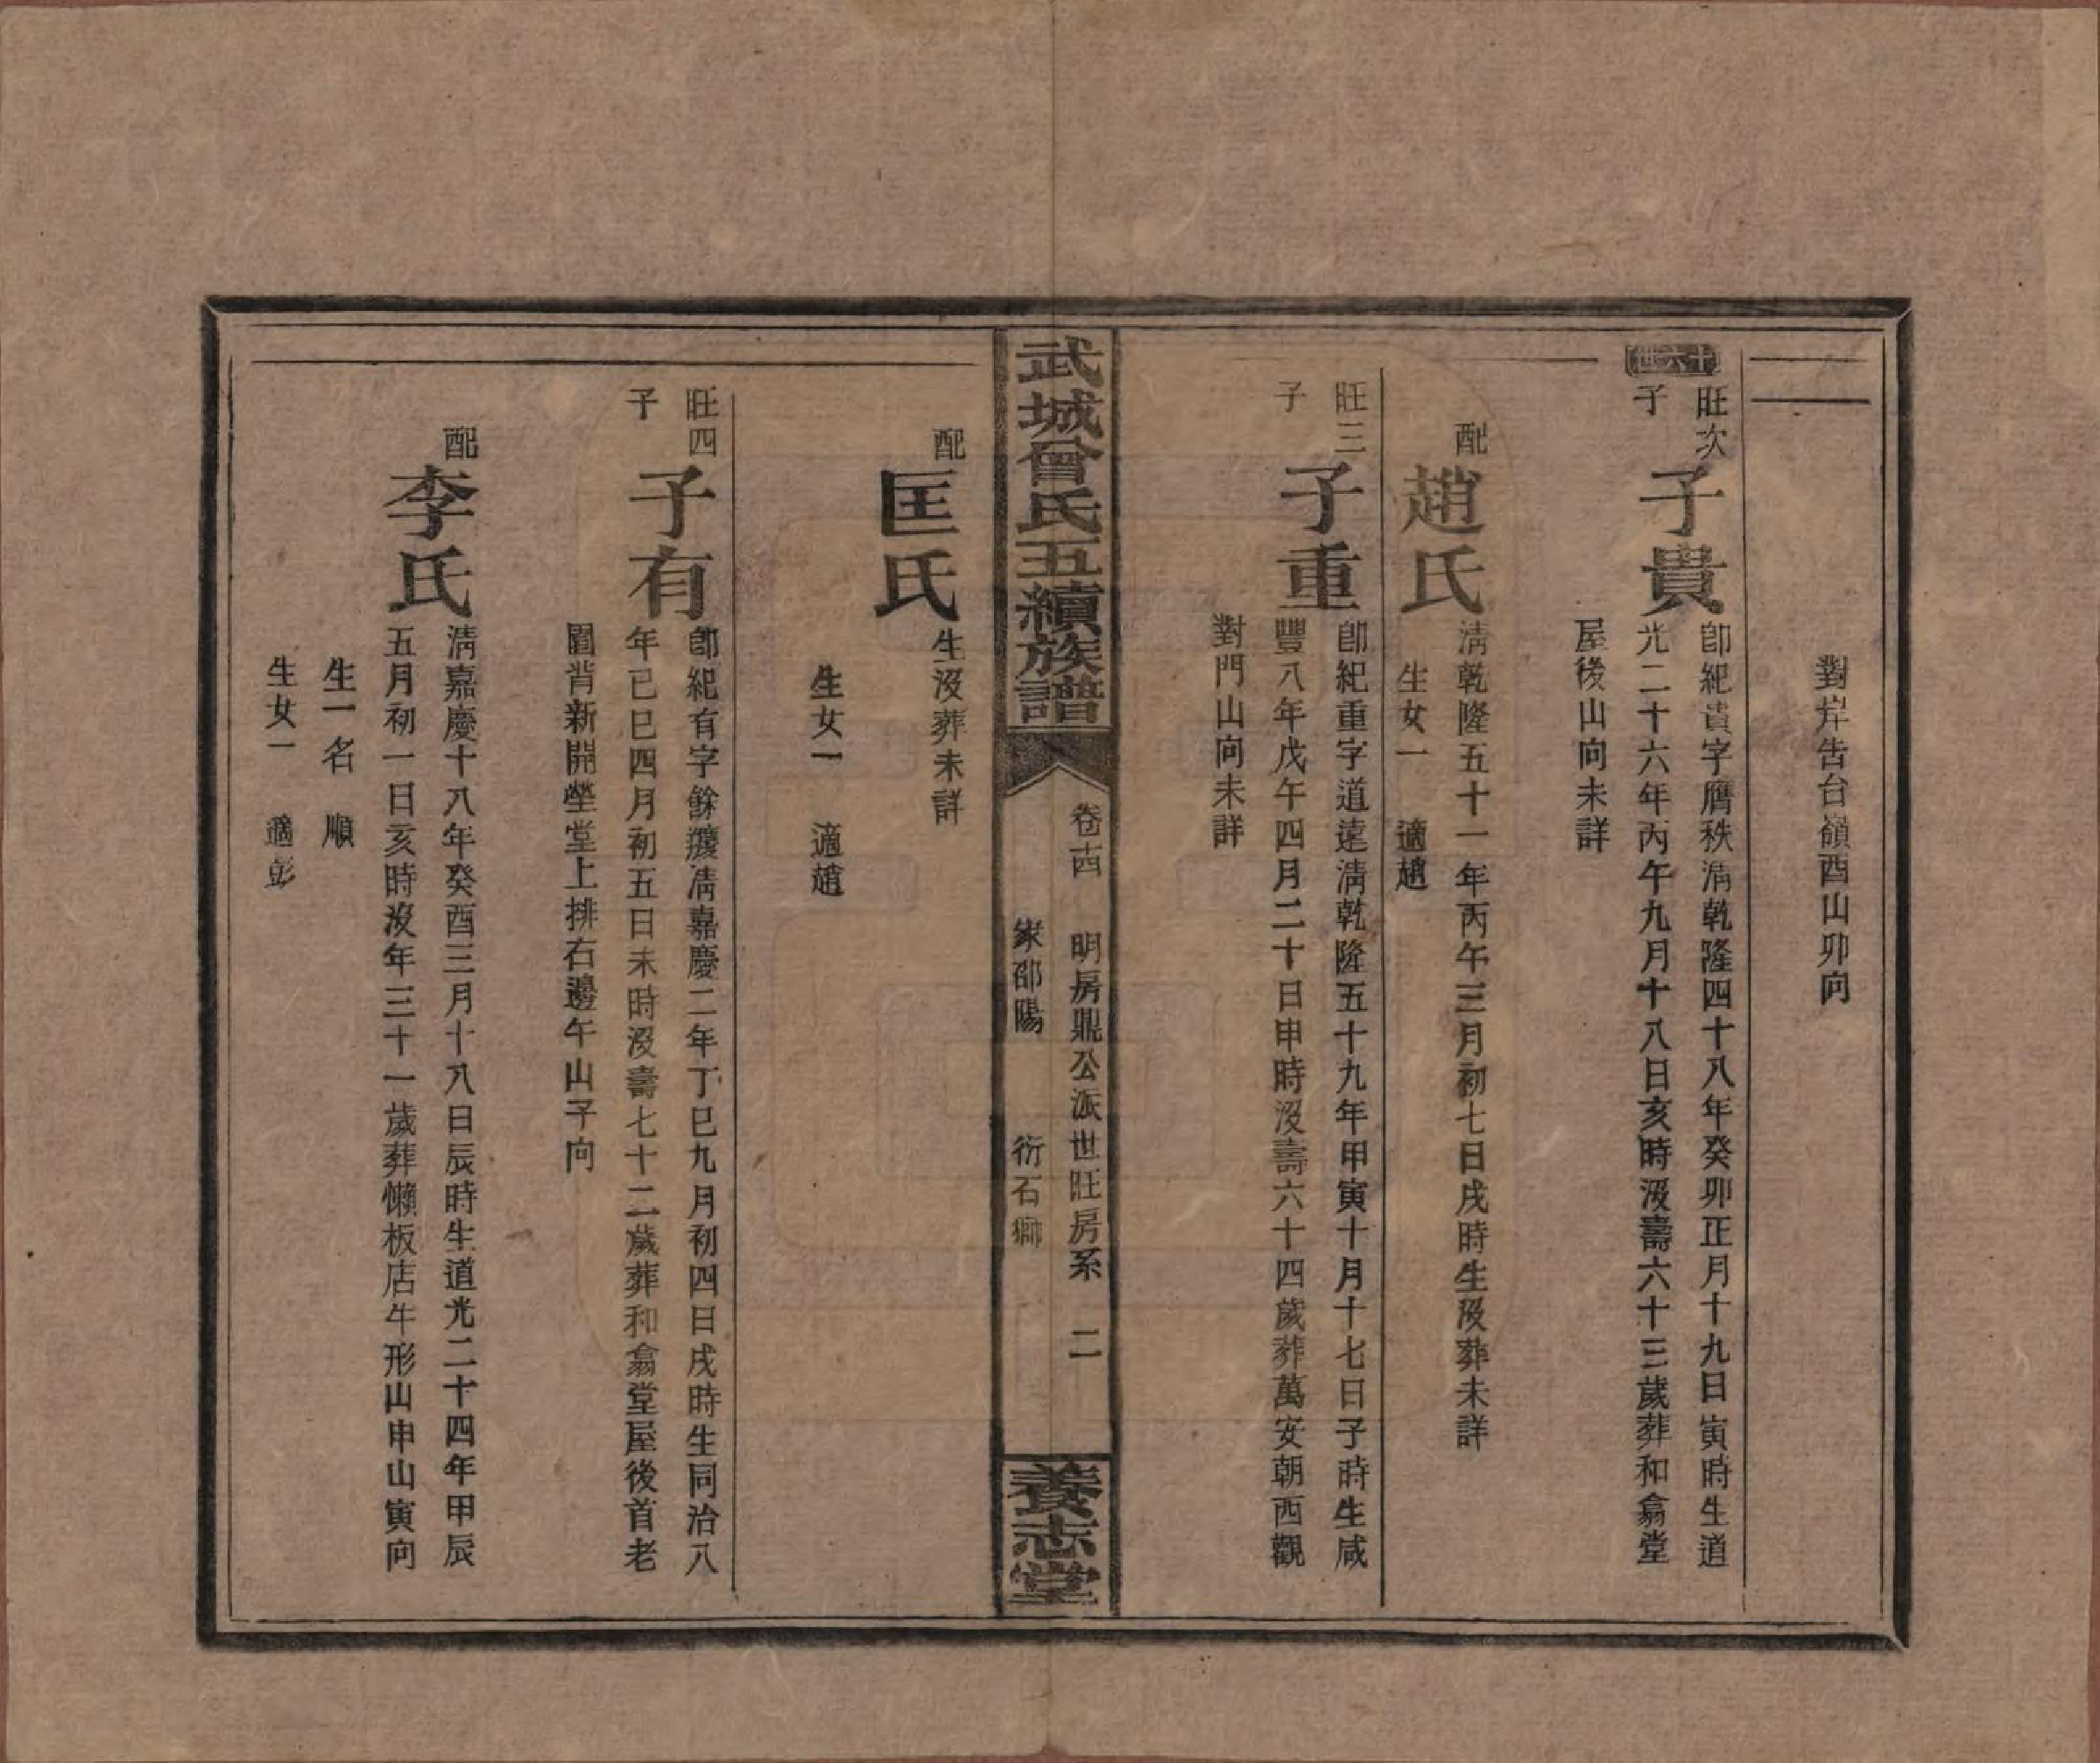 對岸告台嶺酉山卯向
六十四
旺次子
子貴
卽紀貴字膺秩淸乾隆四十八年癸卯正月十九日寅時生道
光二十六年丙午九月十八日亥時沒壽六十三歲葬和翕堂
屋後山向未詳
配
趙氏
淸乾隆五十一年丙午三月初七日戌時生沒葬未詳
生女一 適趙
旺三子
子重
卽紀重字道遠淸乾隆五十九年甲寅十月十七日子時生咸
豐八年戊午四月二十日申時沒壽六十四歲葬萬安朝西觀
對門山向未詳
武城曾氏五續族譜
卷十四 明房鼎公派世旺房系 二
家邵陽 衍石獅
養志堂
配
匡氏
生沒葬未詳
生女一 適趙
旺四子
子有
卽紀有字餘淸嘉慶二年丁巳九月初四日戌時生同治八
年己巳四月初五日未時沒壽七十二歲葬和翕堂屋後首老
園背新開塋堂上排右邊午山子向
配
李氏
淸嘉慶十八年癸酉三月十八日辰時生道光二十四年甲辰
五月初一日亥時沒年三十一歲葬懶板店牛形山申山寅向
生一名 順
生女一 適彭